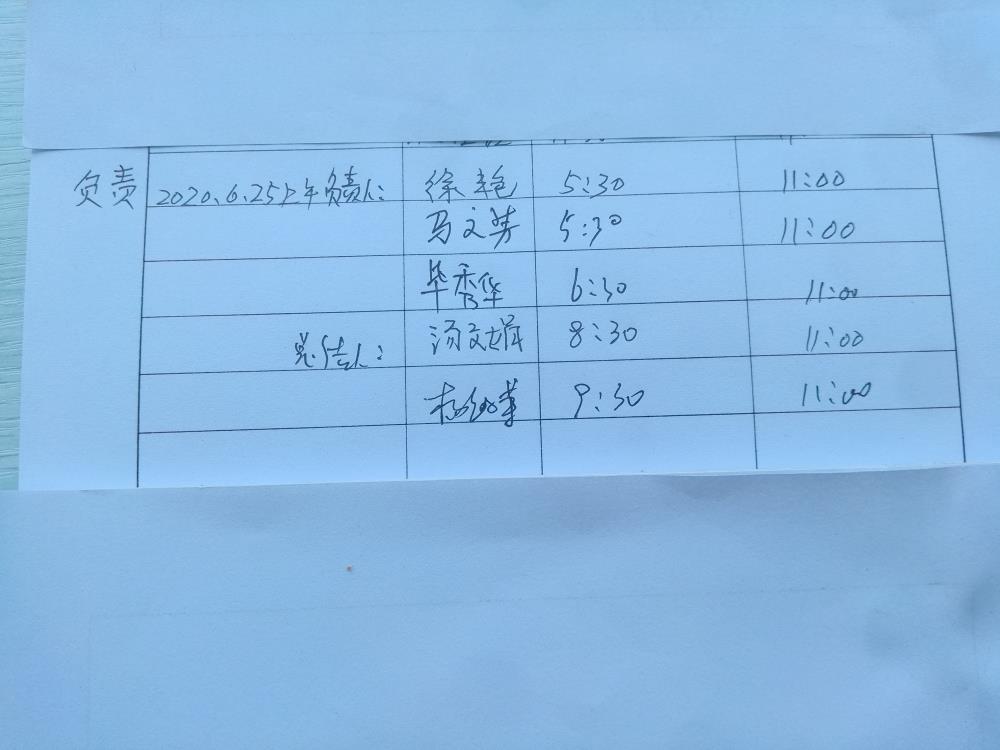 负责 2020.6.25上午负责人: 徐艳 5:30 11:00
马文芳 5:30 11:00
毕秀华 6:30 11:00
总结人: 汤文娟 8:30 11:00
9:30 11:00